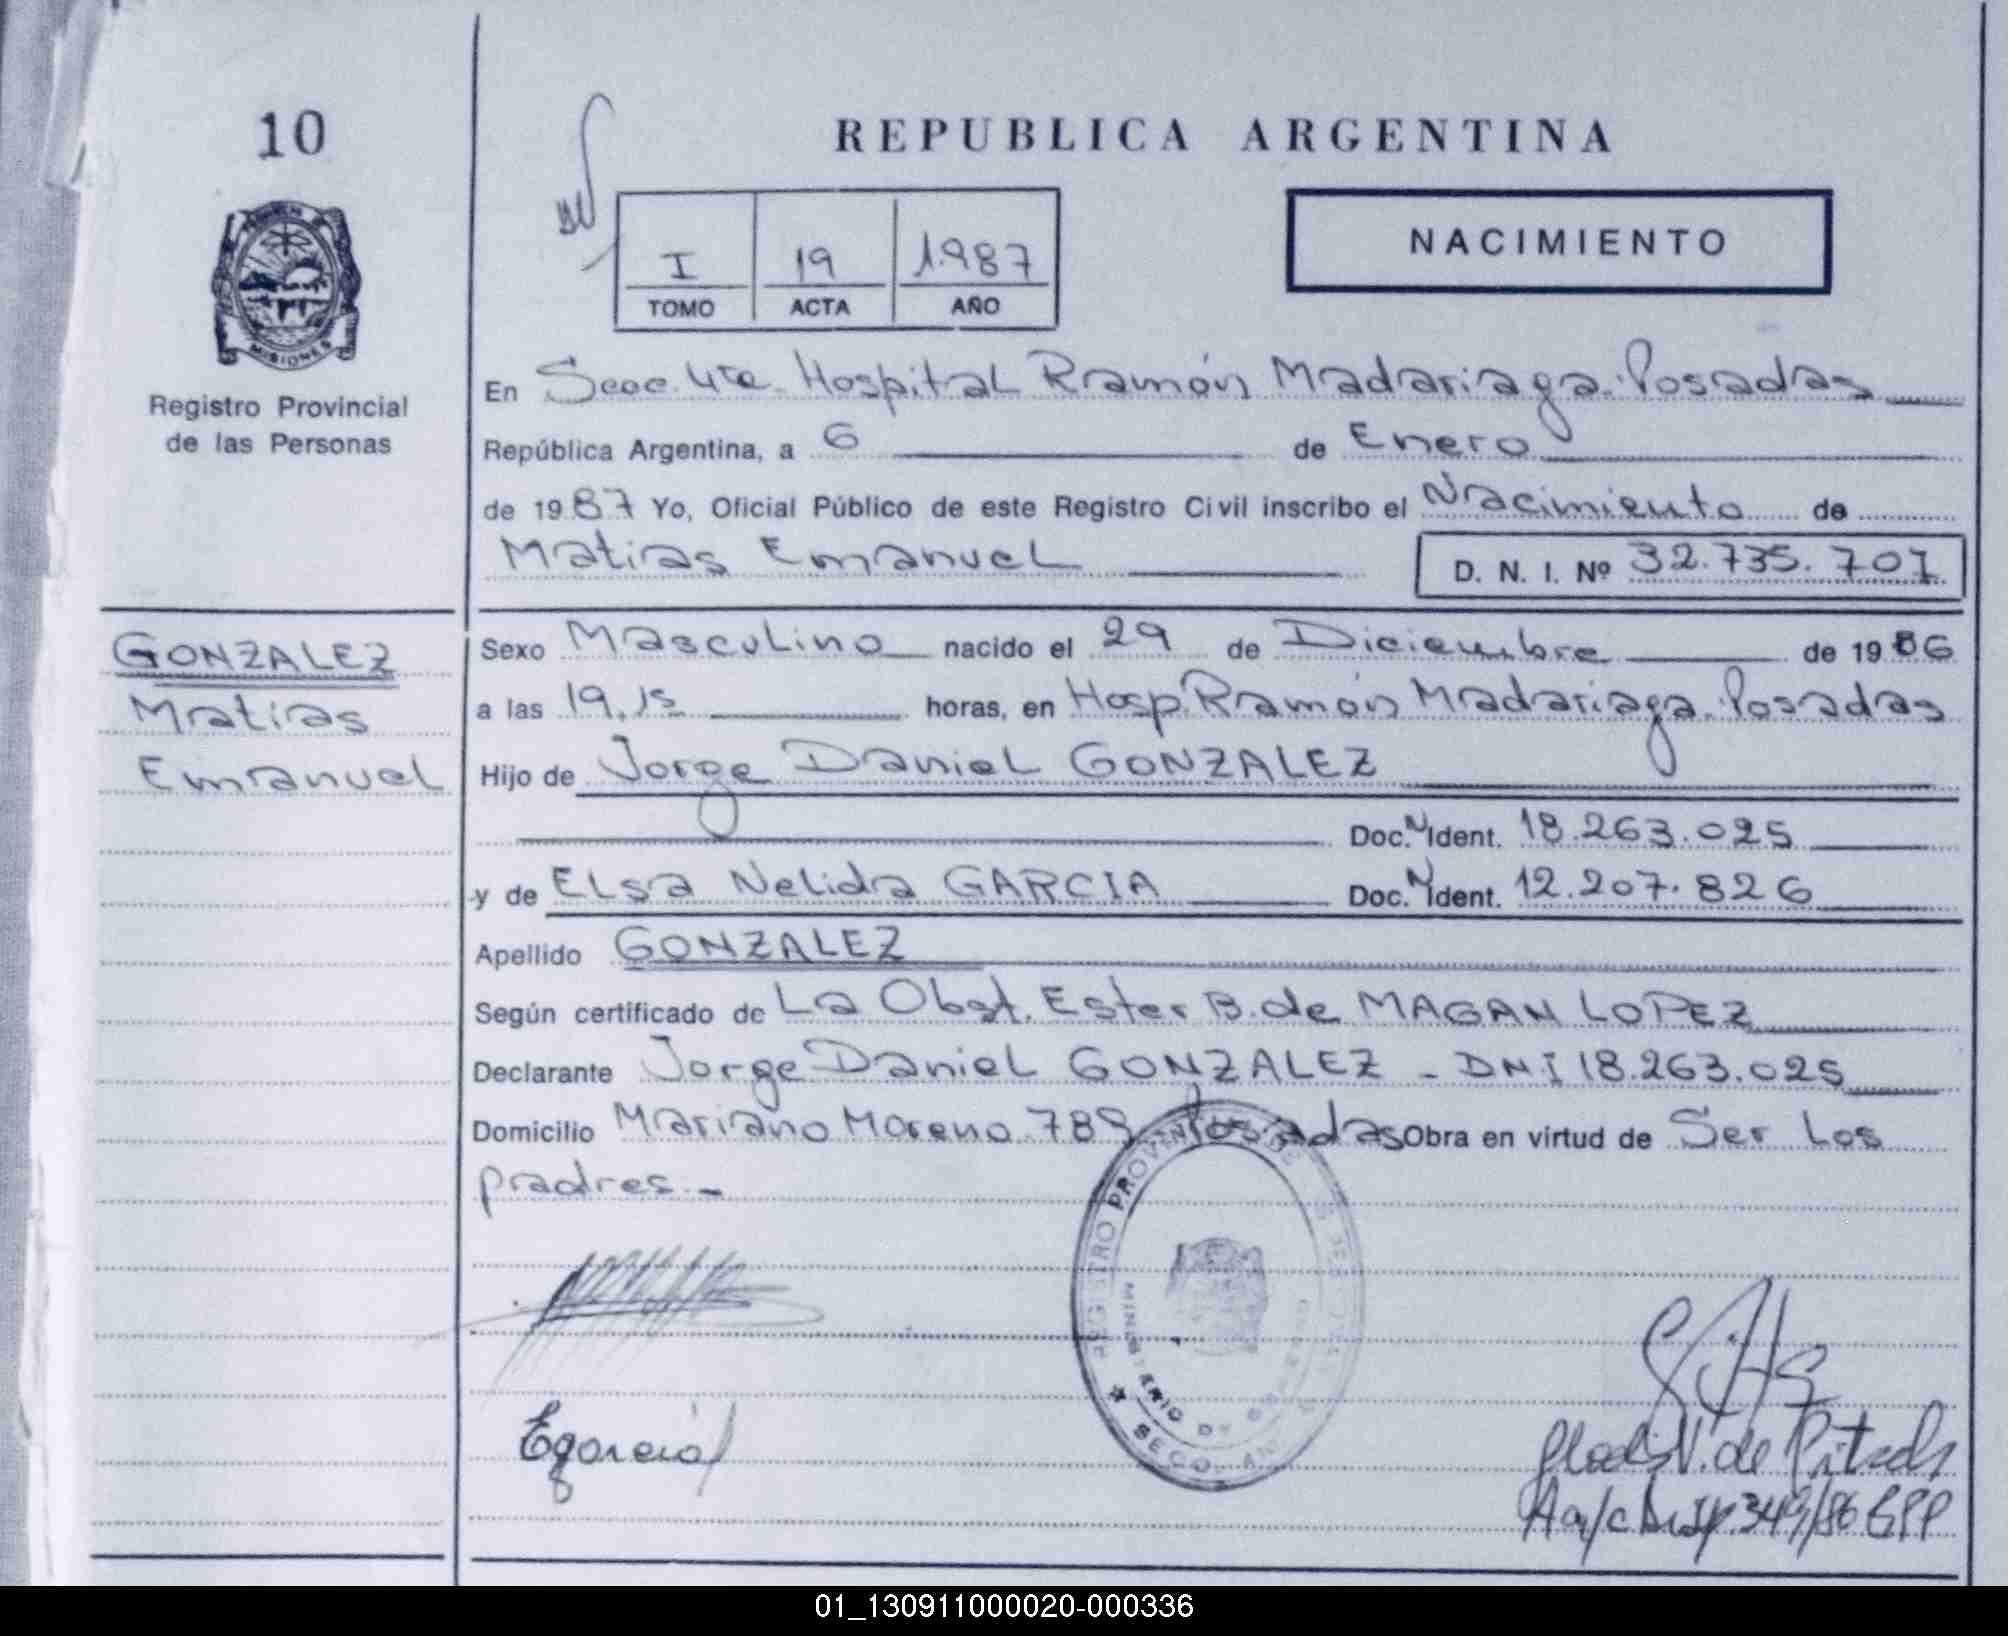 10
REPUBLICA ARGENTINA
NACIMIENTO
I 19 1.987
TOMO ACTA AÑO
MISIONES
Registro Provincial
de las Personas
En Secc. 4ta. Hospital Ramón Madariaga. Posadas
República Argentina, a 6 de Enero
de 1987 Yo, Oficial Público de este Registro Civil inscribo el Nacimiento de
Matias Emanuel D. N. I. Nº 32.735.701
GONZALEZ
Matias
Emanuel
Sexo Masculino nacido el 29 de Diciembre de 1986
a las 19,15 horas, en Hosp. Ramón Madariaga. Posadas
Hijo de Jorge Daniel GONZALEZ
Doc. N Ident. 18.263.025
y de ELsa Nelida GARCIA Doc. N Ident. 12.207.826
Apellido GONZALEZ
Según certificado de La Obst. Ester B. de MAGAN LOPEZ
Declarante Jorge Daniel GONZALEZ - DNI 18.263.025
Domicilio Mariano Moreno 789 Posadas Obra en virtud de Ser los
padres.-
REGISTRO PROVIN
MINISTERIO DE
Egarcia
V. de
349/86
01_130911000020-000336